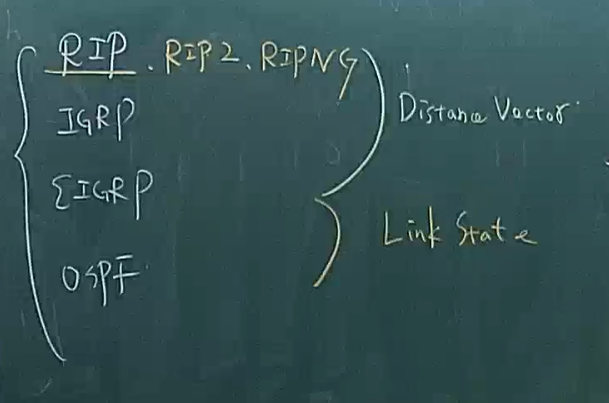 RIP. RIP2. RIPNG
IGRP
EIGRP
OSPF
Distance Vector
Link State